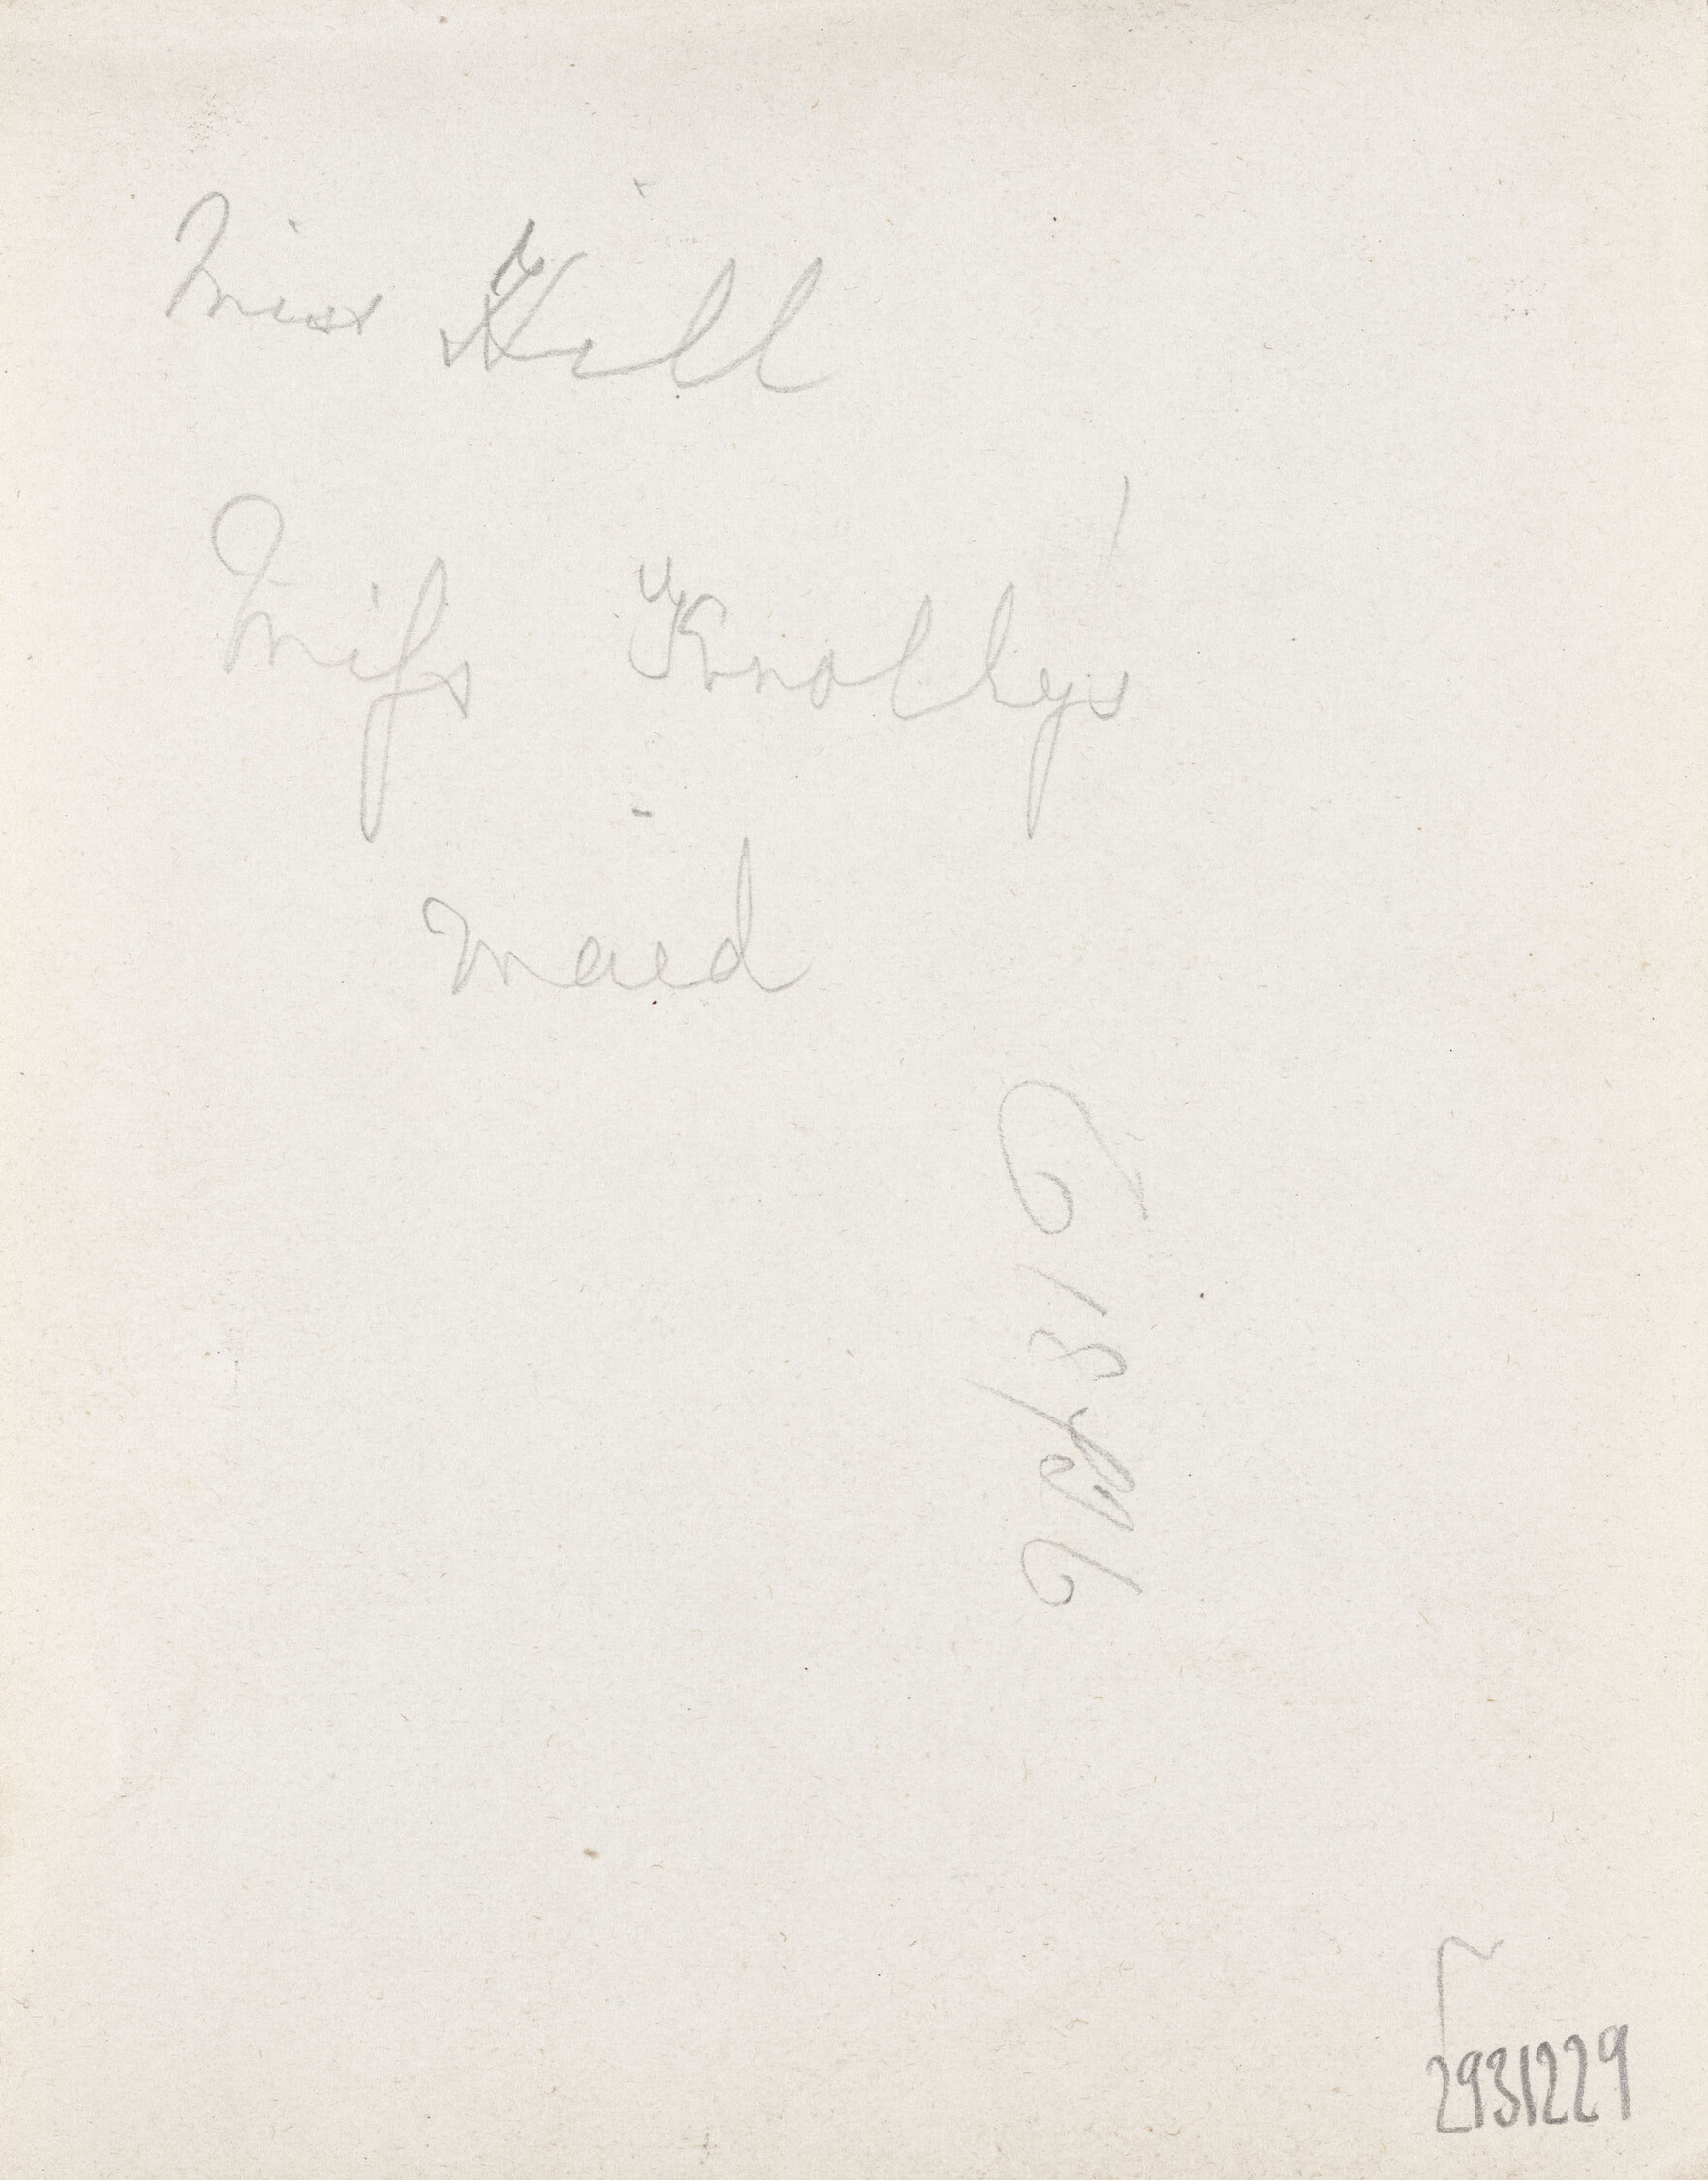 Miss Hill
Miſs Knollys'
maid
2931229